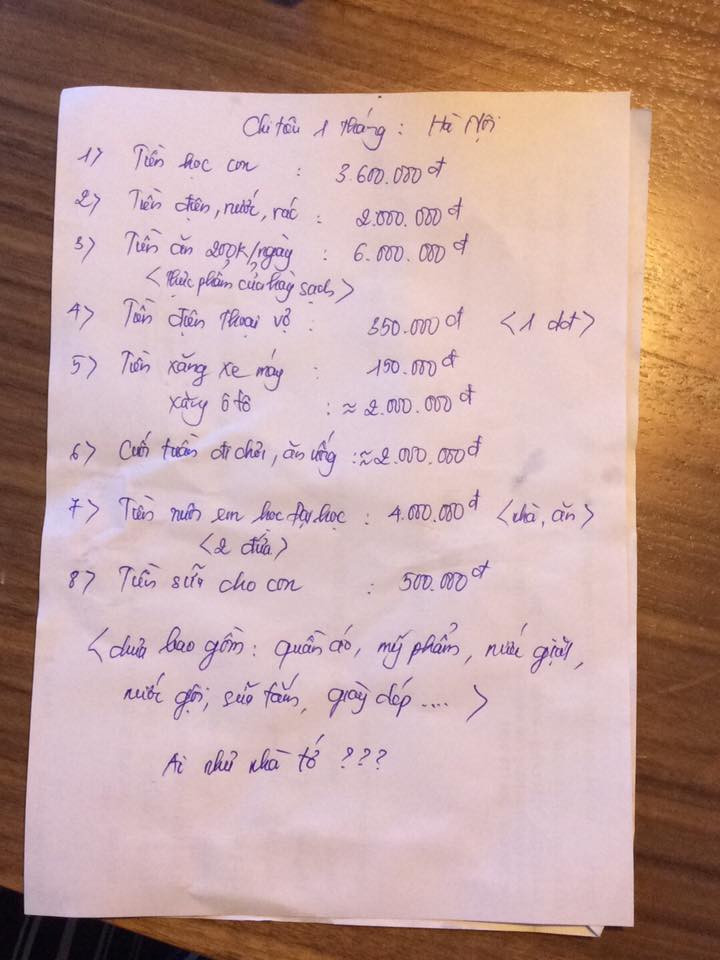 Chi tiêu 1 tháng : Hà Nội
1> Tiền học con : 3.600.000đ
2> Tiền điện, nước, rác : 2.000.000đ
3> Tiền ăn 200k/ngày : 6.000.000đ
<thực phẩm cửa hàng sạch>
4> Tiền điện thoại vợ : 350.000đ <1 đợt>
5> Tiền xăng xe máy : 150.000đ
xăng ô tô : ≈ 2.000.000đ
6> Cuối tuần đi chơi, ăn uống : ≈ 2.000.000đ
7> Tiền nuôi em học đại học : 4.000.000đ <nhà, ăn>
<2 đứa>
8> Tiền sữa cho con : 500.000đ
<chưa bao gồm : quần áo, mỹ phẩm, nước giặt,
nước gội, sữa tắm, giày dép .... >
Ai như nhà tớ ???